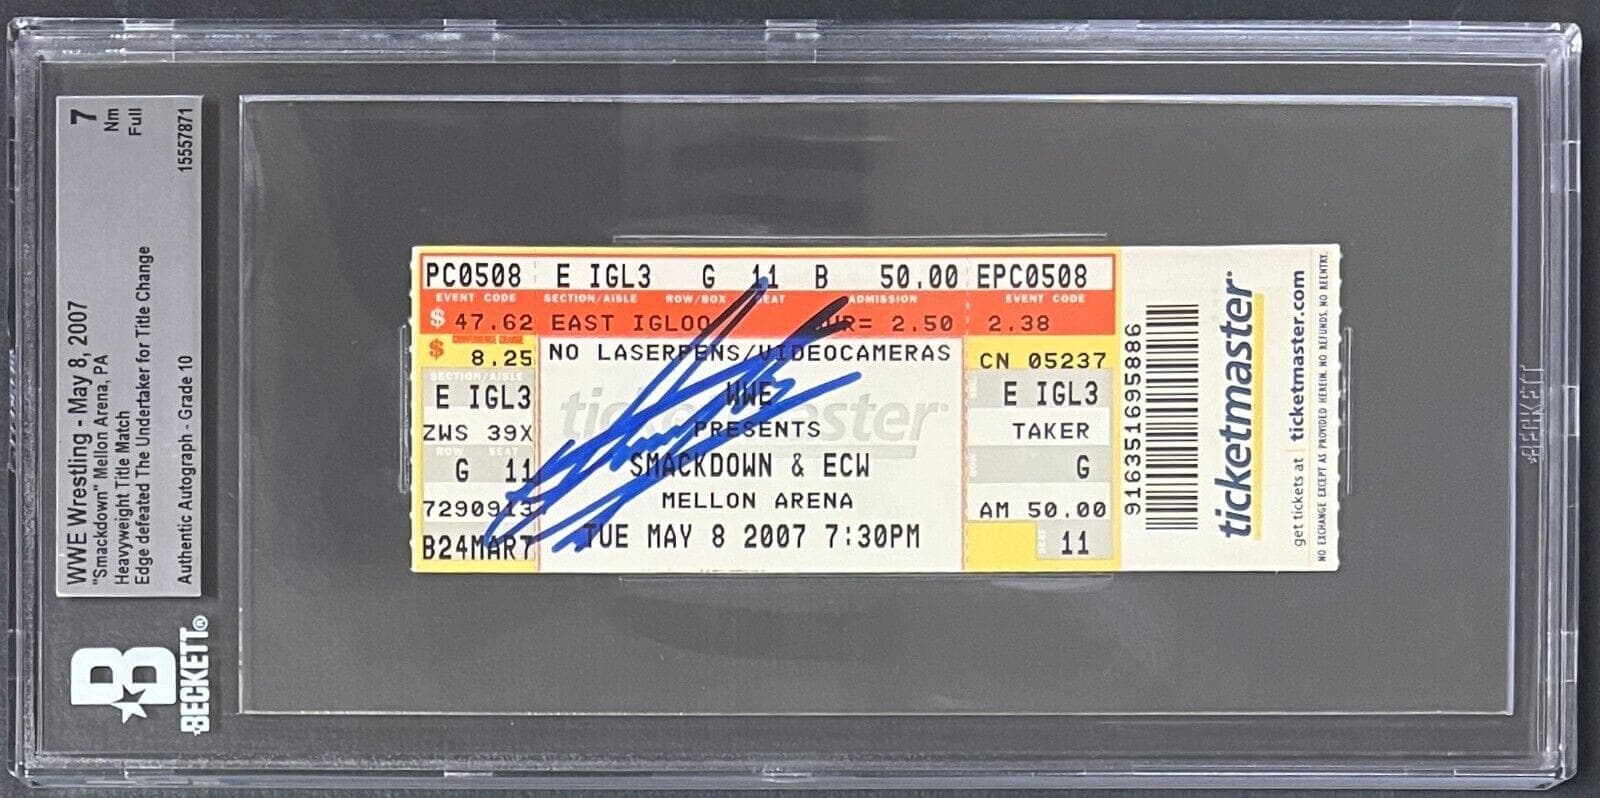 WWE Wrestling - May 8, 2007
"Smackdown" Mellon Arena, PA
Heavyweight Title Match
Edge defeated The Undertaker for Title Change
Authentic Autograph - Grade 10
7
Nm
Full
15557871
B
BECKETT®
PC0508 E IGL3 G 11 B 50.00 EPC0508
EVENT CODE SECTION/AISLE ROW/BOX SEAT ADMISSION EVENT CODE
$ 47.62 EAST IGLOO 2.50 2.38
CONVENIENCE CHARGE
$ 8.25 NO LASERPENS/VIDEOCAMERAS CN 05237
SECTION/AISLE
E IGL3 WWE E IGL3
ticketmaster
ZWS 39X PRESENTS TAKER
ROW SEAT
G 11 SMACKDOWN & ECW ROW G
7290913 MELLON ARENA AM 50.00
B24MAR7 TUE MAY 8 2007 7:30PM SEAT 11
916351695886
ticketmaster
get tickets at ticketmaster.com
NO EXCHANGE EXCEPT AS PROVIDED HEREIN. NO REFUNDS. NO REENTRY.
BECKETT